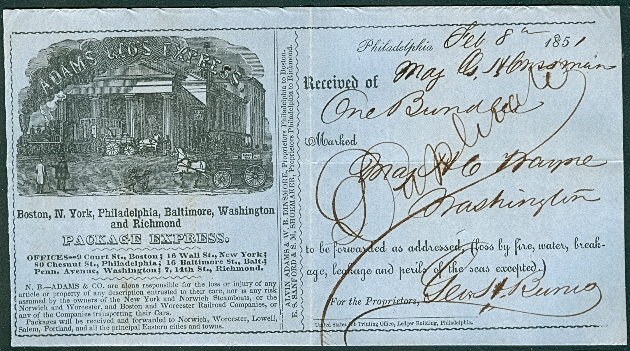 ADAMS & CO'S EXPRESS.
Boston, N. York, Philadelphia, Baltimore, Washington
and Richmond
PACKAGE EXPRESS.
OFFICES—9 Court St., Boston; 16 Wall St., New York;
80 Chesnut St., Philadelphia; 16 Baltimore St., Balt.;
Penn. Avenue, Washington; 7, 14th St., Richmond.
N. B.—ADAMS & CO. are alone responsible for the loss or injury of any
article or property of any description entrusted to their care, nor is any risk
assumed by the owners of the New York and Norwich Steamboats, or the
Norwich and Worcester, and Boston and Worcester Railroad Companies, or
any of the Companies transporting their Cars.
Packages will be received and forwarded to Norwich, Worcester, Lowell,
Salem, Portland, and all the principal Eastern cities and towns.
ALVIN ADAMS & W. B. DINSMORE, Proprietors Philadelphia to Boston.
E. S. SANFORD & S. M. SHOEMAKER, Proprietors Philadelphia to Richmond.
Philadelphia Feb 8th 1851
Received of Maj G. H. Crossman
One Bundle
Duplicate
Marked
Maj H C Wayne
Washington
to be forwarded as addressed, (loss by fire, water, break-
age, leakage and perils of the seas excepted.)
For the Proprietors, Geo
United States Job Printing Office, Ledger Building, Philadelphia.